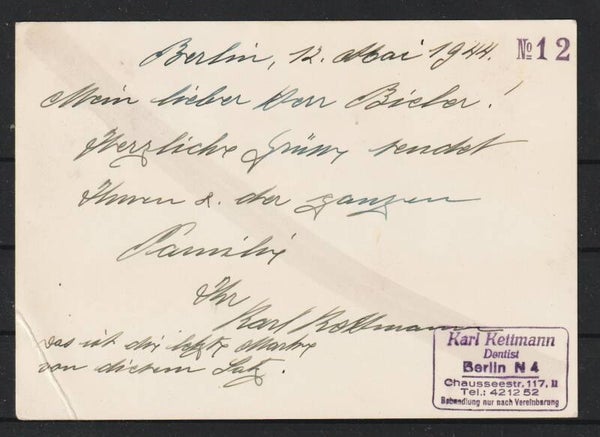 Berlin, 12. Mai 1944.
No 12
Mein lieber Herr Bieber!
Herzliche Grüße sendet
Ihnen & der ganzen
Familie
Ihr
Karl Kettmann
Das ist die letzte Marke
von diesem Satz.
Karl Kettmann
Dentist
Berlin N 4
Chausseestr. 117, II
Tel.: 42 12 52
Behandlung nur nach Vereinbarung